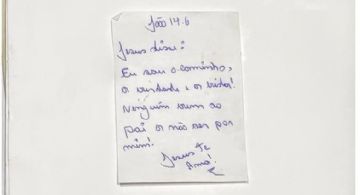 João 14.6
Jesus disse:
Eu sou o caminho,
a verdade e a vida!
Ninguém vem ao
pai a não ser por
mim!
Jesus te
Ama!